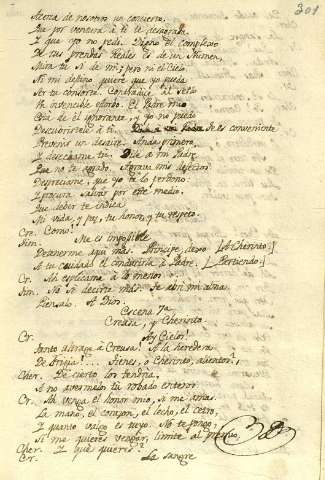 301
Acerca de nosotro un concierto,
Que por ventura à ti te desagrada
Y que yo no pedi. Digno el complexo
De tus prendas Reales es de un Numen,
Mira tu si de mi; pero ni el Cielo
Ni mi destino quiere que yo pueda
Ser tu consorte. Contradice
Un invencible estorbo. El Padre mio
Està de èl ignorante, y yo no puedo
Descubrirsele à ti. de es conveniente
Prevenir un desaire. Anda primero,
Y desecharme tu. Di à mi Padre
Que no te agrado. Agrava mis defectos
Despreciame, que yo te lo perdono.
Y procura salvar por este medio,
Que deber te indica
Mi vida, y paz, tu honor, y tu respeto.
Cre. Como!
Tim. No es imposible
Detenerme aqui màs. Principe, dexo [A Cherinto.]
A tu cuidado el conducirla à Padre. [Partiendo.]
Cr. Ah! esplicame à lo menor...
Tim. No sè decirte màs. Te abrì mi alma.
Piensalo. A Dios.
Escena 7ª
Creusa, y Cherinto
Cr. Ay Cielos!
Tanto ultrage à Creusa! A la heredera
De Frigia!... Tienes, o Cherinto, alientor?,
Cher. De cierto los tendria,
A no averlmelos tu robado enteros.
Cr. Ah venga el honor mio, si me amas.
La mano, el corazon, el lecho, el cetro,
Y quanto valgo es tuyo. No te pongo,
Si me quieres vengar, limite al premio
Cher. Y què quieres?
Cr. La sangre